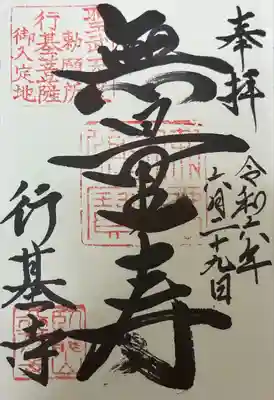 奉拝
令和六年
六月二十九日
無量寿
聖武天皇
勅願所
行基菩薩
御入定地
行基寺